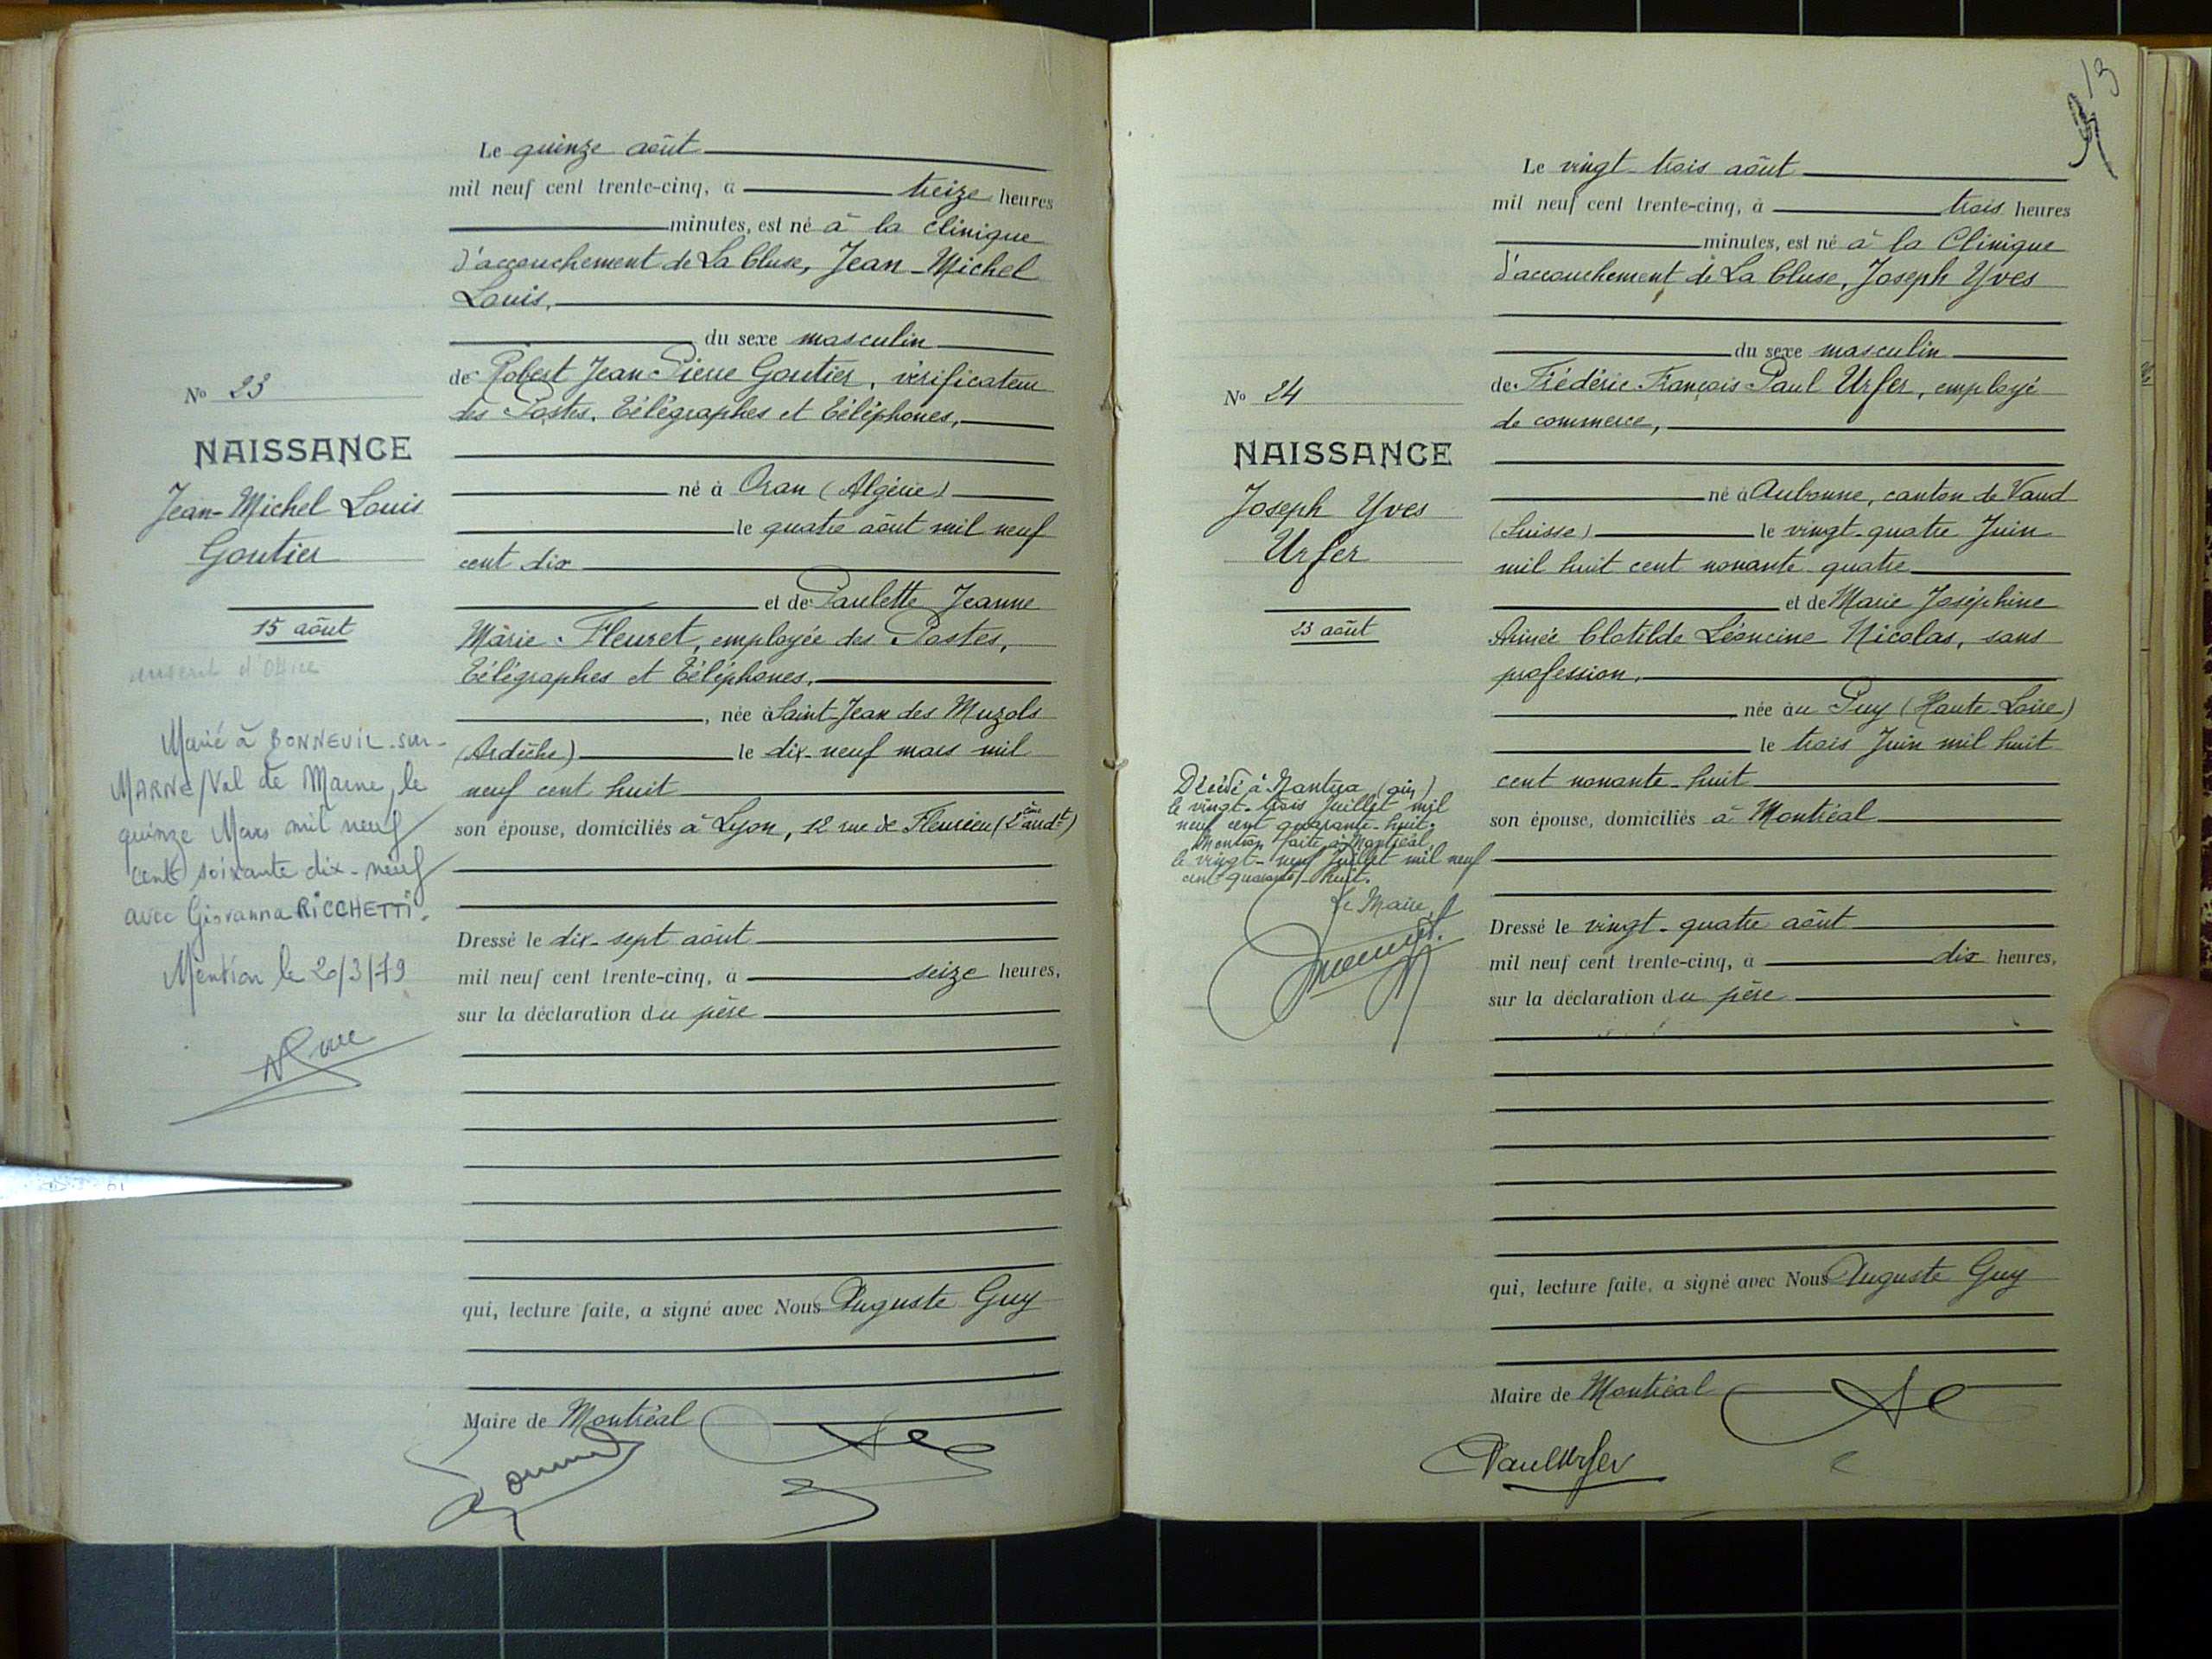 Le quinze août
mil neuf cent trente-cinq, à treize heures
minutes, est né à la clinique
d'accouchement de La Cluse, Jean-Michel
Louis,
du sexe masculin
de Robert Jean Pierre Goutier, vérificateur
des Postes, Télégraphes et Téléphones,
né à Oran (Algérie)
le quatre août mil neuf
cent dix
et de Paulette Jeanne
Marie Fleuret, employée des Postes,
Télégraphes et Téléphones,
, née à Saint-Jean des Muzols
(Ardèche) le dix-neuf mars mil
neuf cent huit
son épouse, domiciliés à Lyon, 12 rue de Fleurieu
Dressé le dix-sept août
mil neuf cent trente-cinq, à seize heures,
sur la déclaration du père
qui, lecture faite, a signé avec Nous Auguste Guy
Maire de Montréal
No 23
NAISSANCE
Jean-Michel Louis
Goutier
15 août
d'Office
Marié à BONNEUIL-sur-
MARNE/Val de Marne, le
quinze Mars mil neuf
cent soixante dix-neuf
avec Giovanna RICCHETTI.
Mention le 20/3/79
13
Le vingt-trois août
mil neuf cent trente-cinq, à trois heures
minutes, est né à la Clinique
d'accouchement de La Cluse, Joseph Yves
du sexe masculin
de Frédéric François Paul Urfer, employé
de commerce,
né à Aubonne, canton de Vaud
(Suisse) le vingt-quatre Juin
mil huit cent nonante-quatre
et de Marie Joséphine
Aimée Clotilde Léoncine Nicolas, sans
profession,
née au Puy (Haute-Loire)
le trois Juin mil huit
cent nonante-huit
son épouse, domiciliés à Montréal
Dressé le vingt-quatre août
mil neuf cent trente-cinq, à dix heures,
sur la déclaration du père
qui, lecture faite, a signé avec Nous Auguste Guy
Maire de Montréal
Paul Urfer
No 24
NAISSANCE
Joseph Yves
Urfer
23 août
Décédé à Nantua (Ain)
le vingt-trois Juillet mil
neuf cent quarante-huit.
Mention faite à Montréal,
le vingt-neuf Juillet mil neuf
cent quarante-huit.
Le Maire,